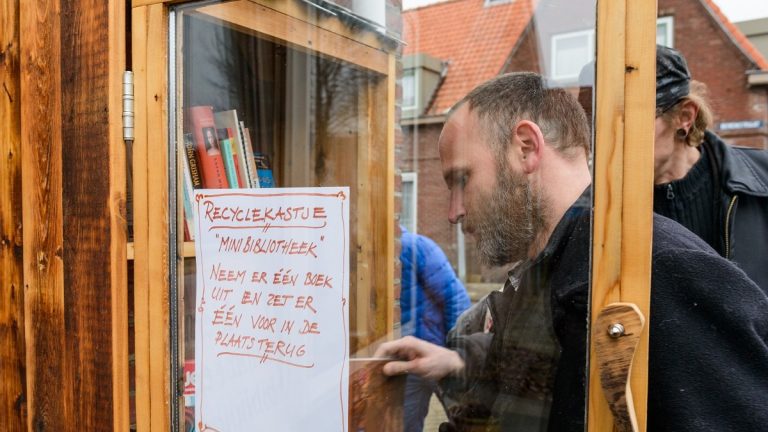 RECYCLEKASTJE
"MINI BIBLIOTHEEK"
NEEM ER ÉÉN BOEK
UIT EN ZET ER
ÉÉN VOOR IN DE
PLAATS TERUG